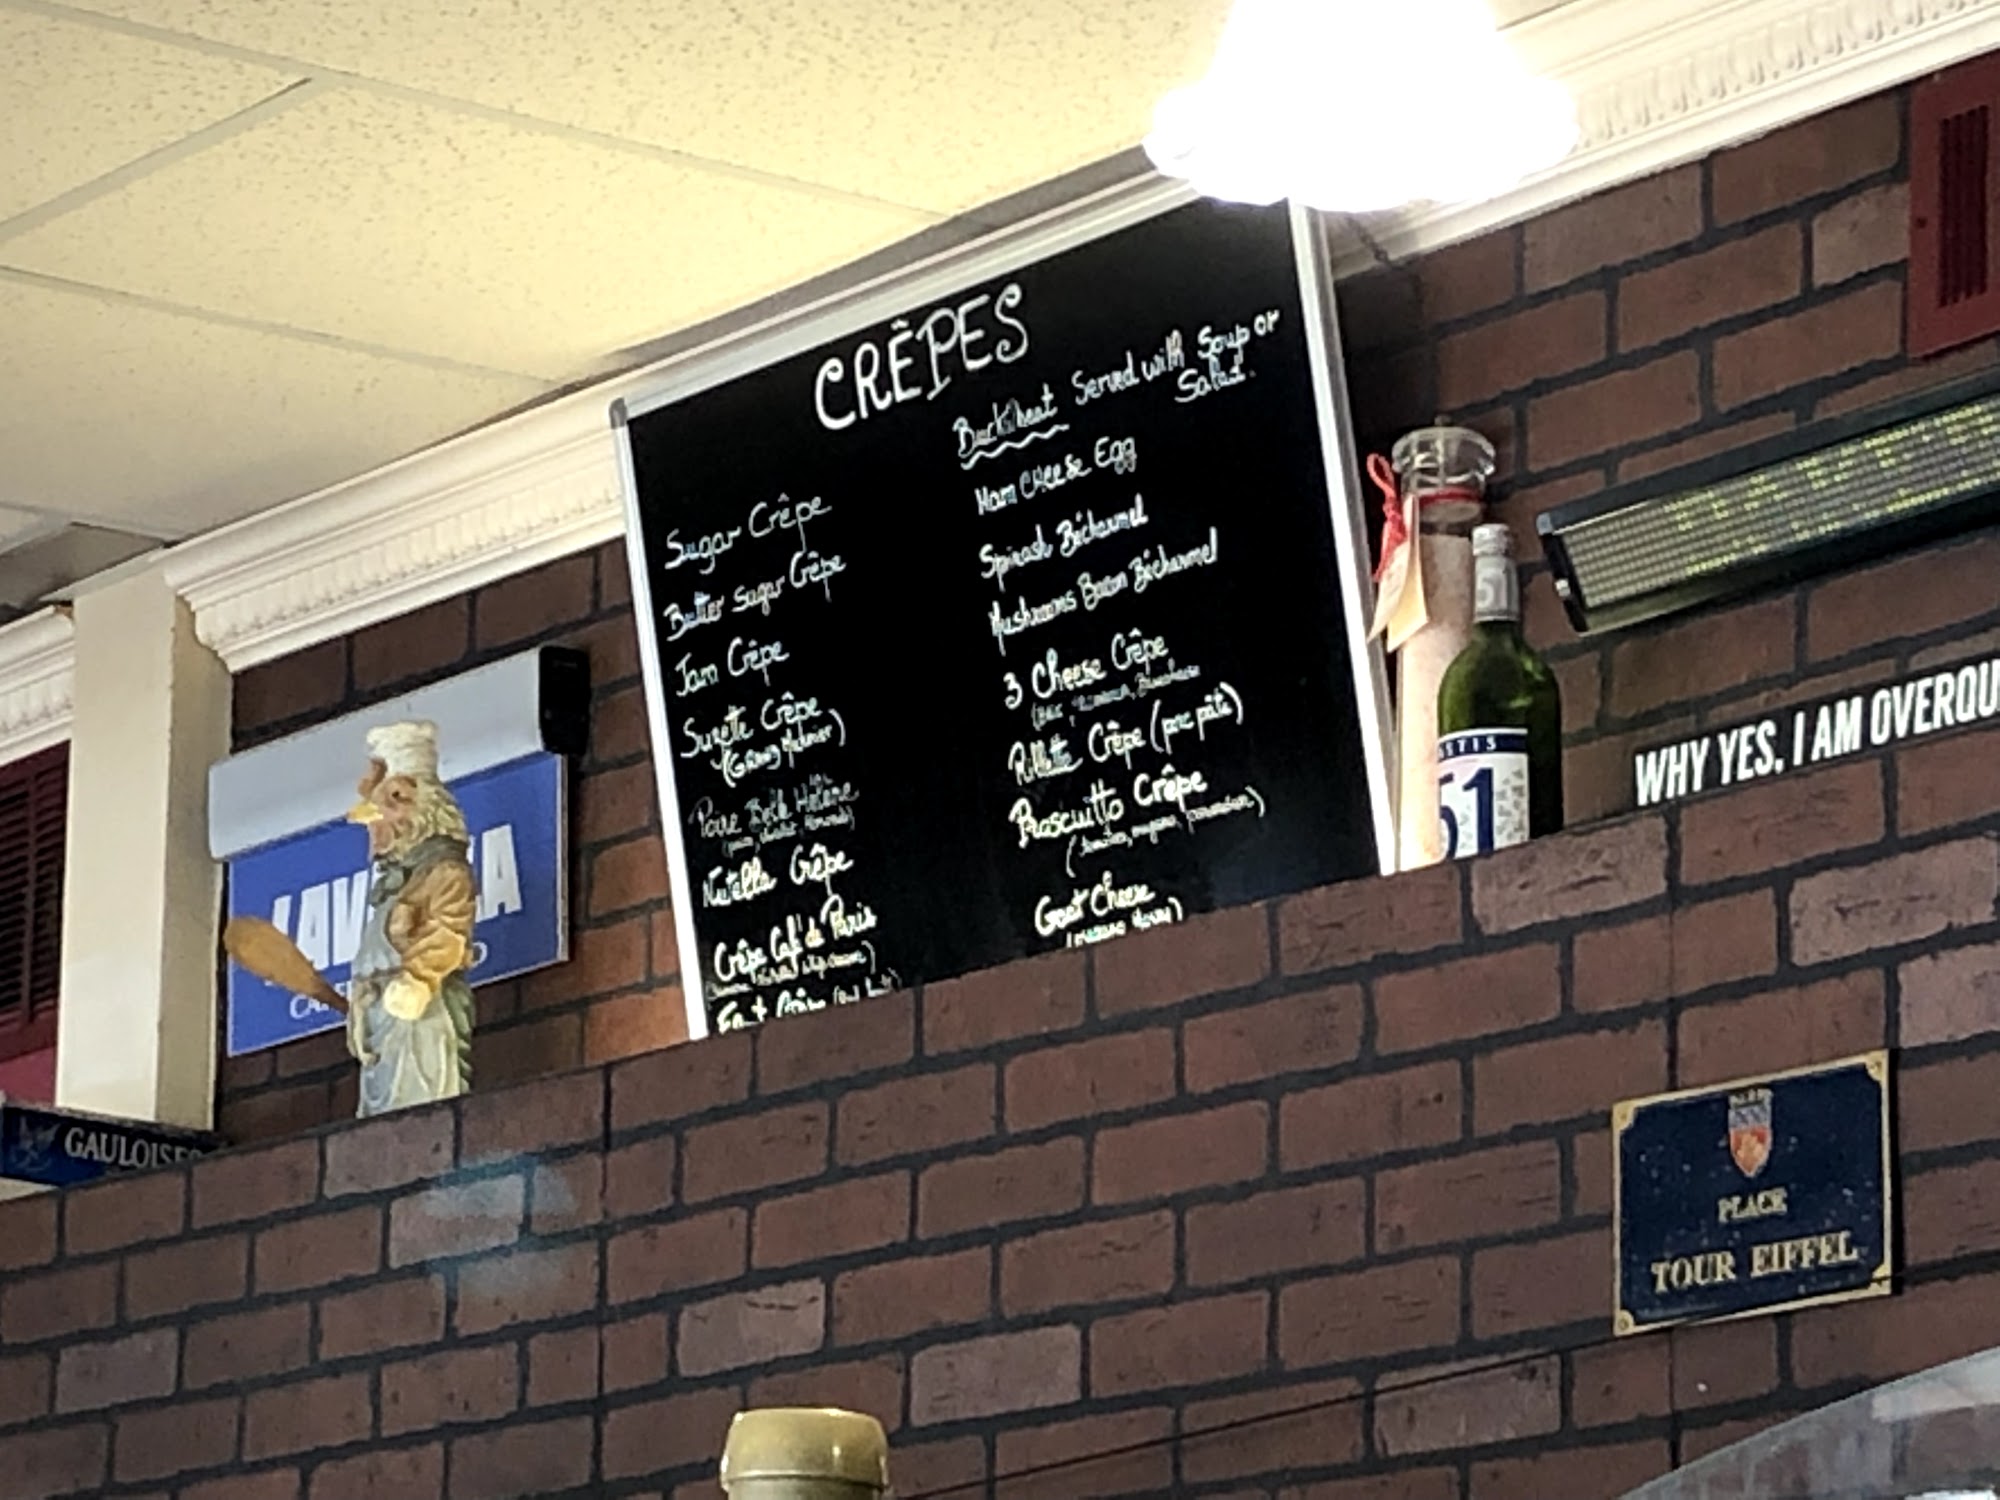 CRÊPES
Sugar Crêpe
Butter Sugar Crêpe
Jam Crêpe
Suzette Crêpe
(Grand Marnier)
Poire Belle Hélène
Nutella Crêpe
Crêpe Café de Paris
Buckwheat Served with Soup or
Salad.
Ham Cheese Egg
Spinash Béchamel
Mushrooms Bacon Béchamel
3 Cheese Crêpe
Rillette Crêpe (porc pâté)
Proscuitto Crêpe
Goat Cheese
LAV A
GAULOISES
51
STIS
51
WHY YES, I AM OVERQU
PLACE
TOUR EIFFEL